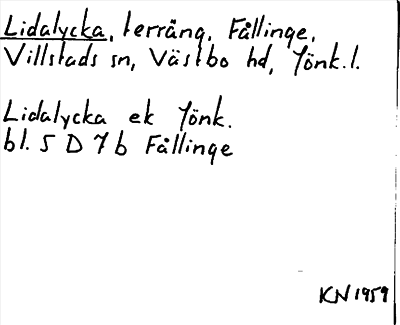 Lidalycka, terräng, Fållinge,
Villstads sn, Västbo hd, Jönk.l.
Lidalycka ek Jönk.
bl. 5 D 7 b Fållinge
KN 1959